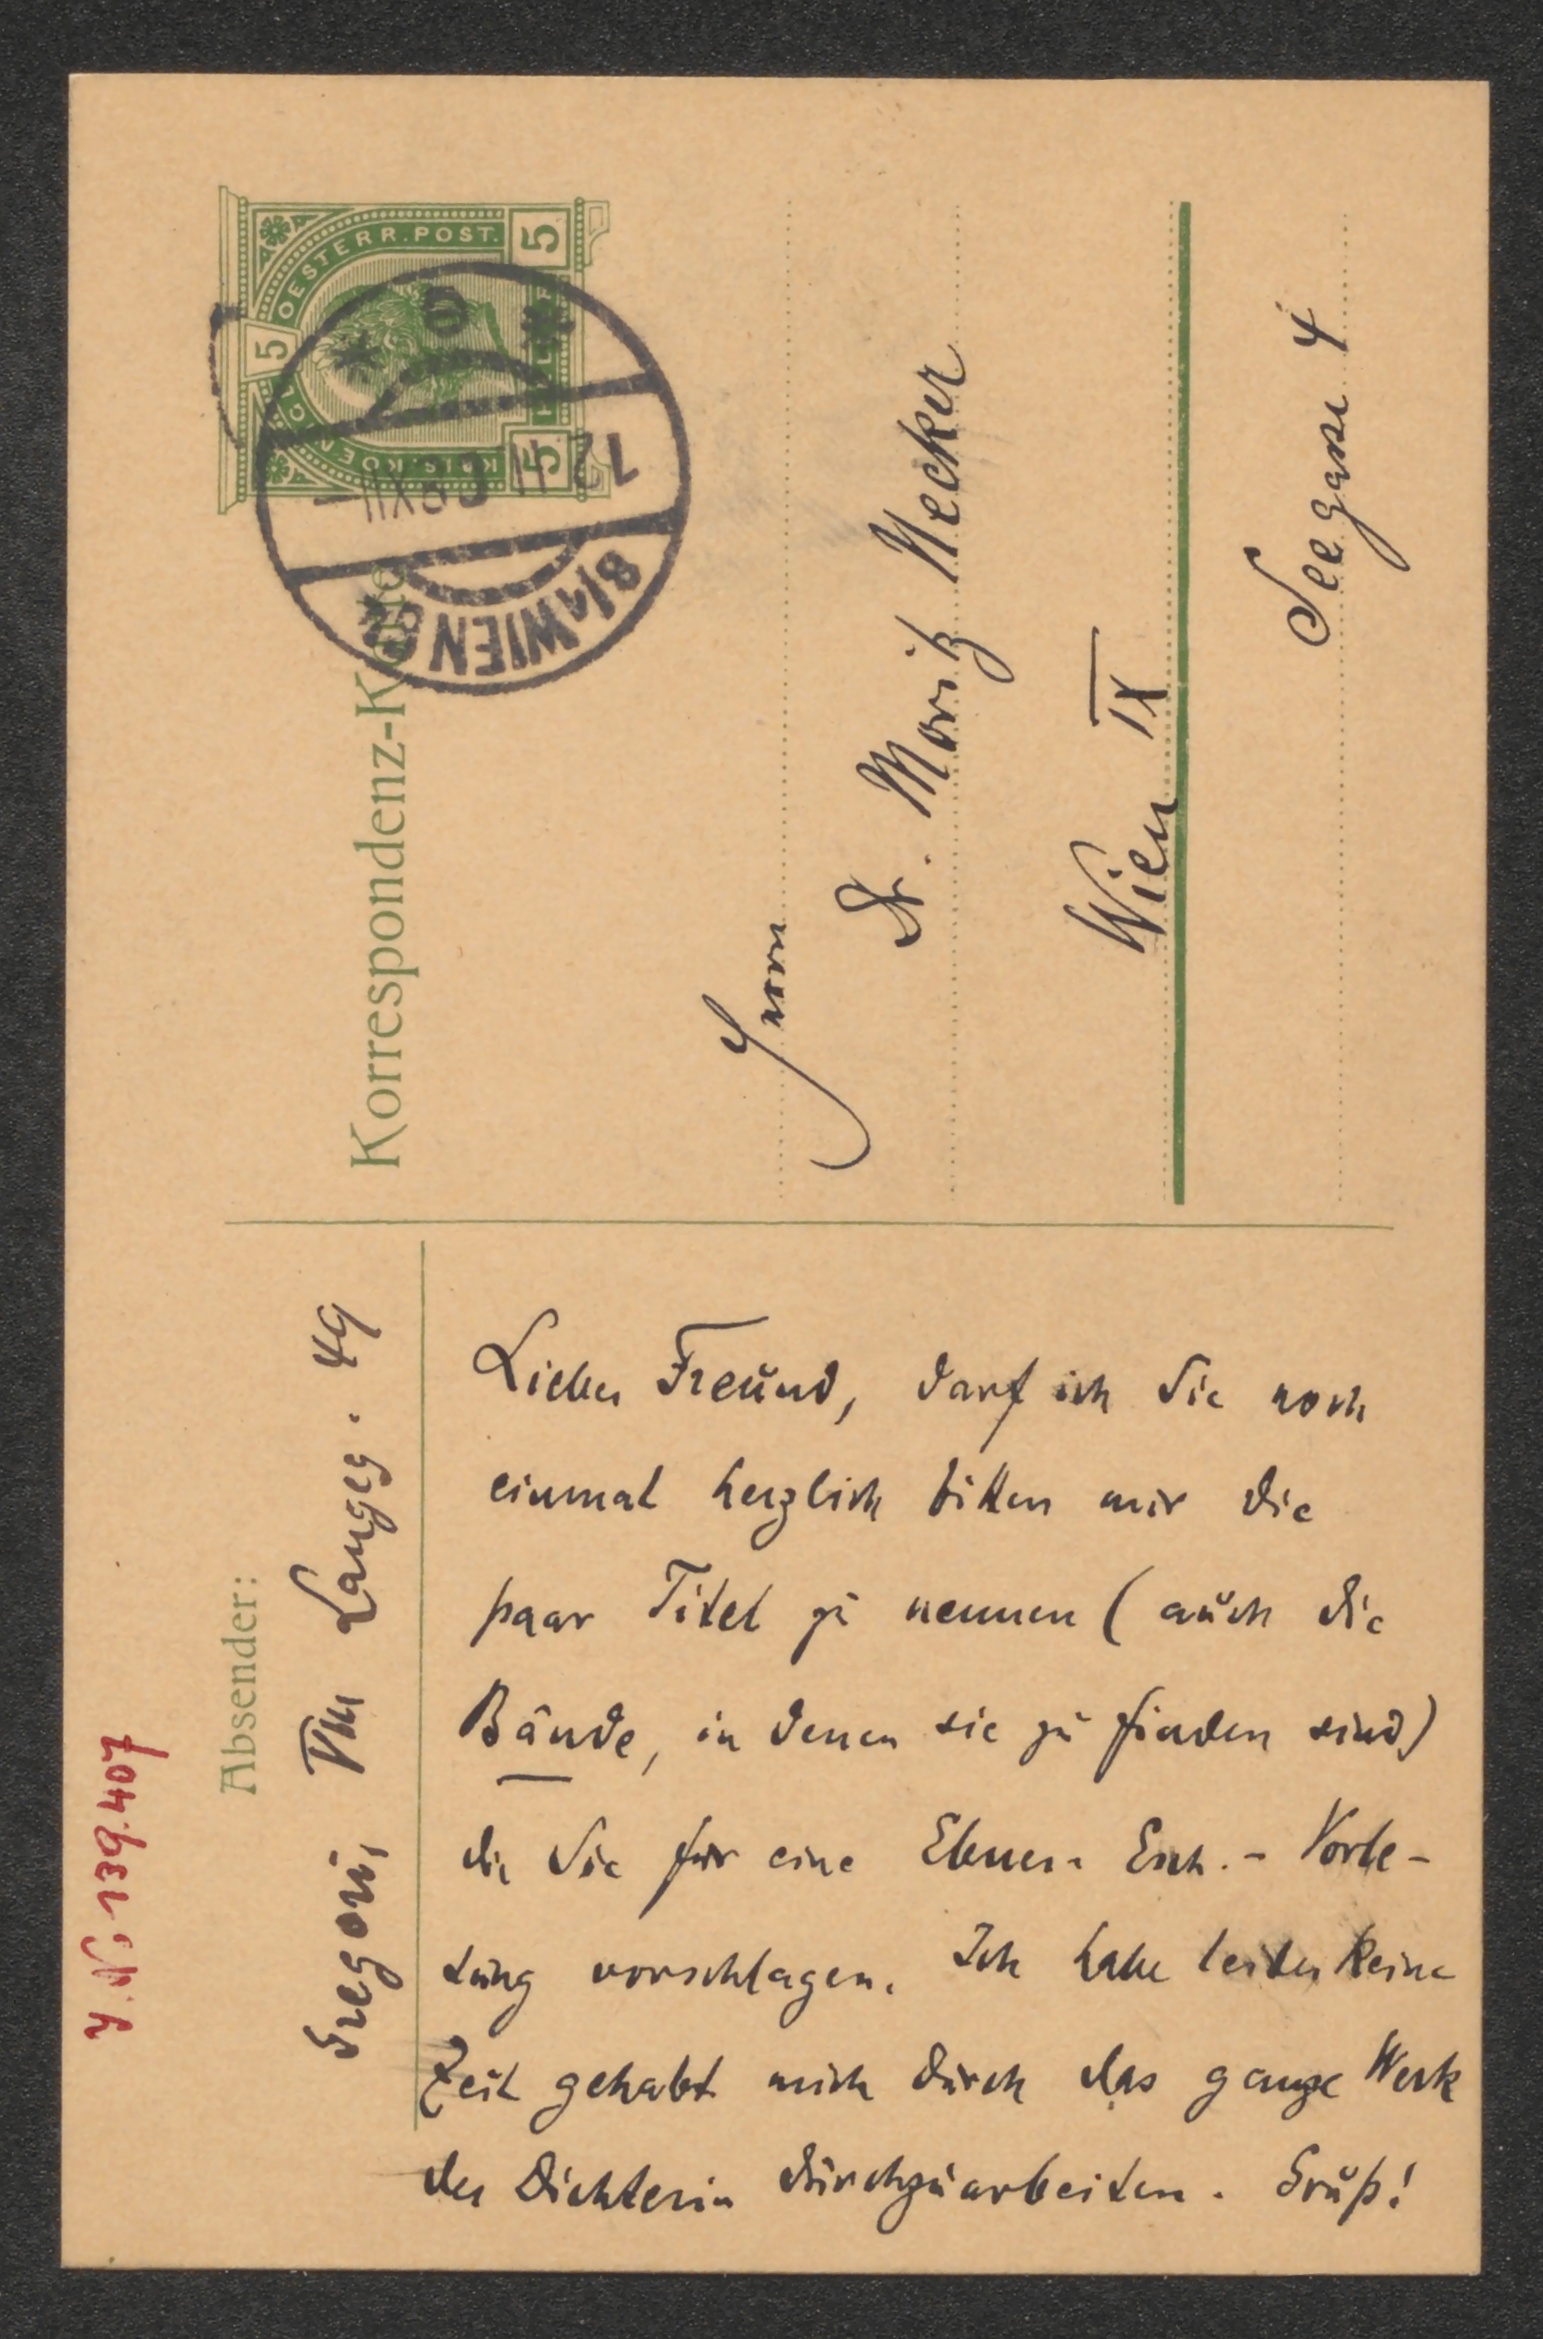 KAIS. KOENIGL. OESTERR. POST.
5
5 5
8/1 WIEN 8
Korrespondenz-Karte
Herrn
Dr. Moritz Necker
Wien IX
Seegasse 4
Absender:
Gregori, VIII Langeg. 49
Lieber Freund, darf ich Sie noch
einmal herzlich bitten mir die
paar Titel zu nennen (auch die
Bände, in denen sie zu finden sind)
die Sie für eine Ebner-Esch.-Vorle-
sung vorschlagen. Ich habe leider keine
Zeit gehabt mich durch das ganze Werk
der Dichterin durchzuarbeiten. Gruß!
J. N. 139.407